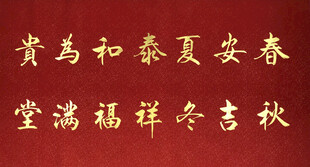 春安夏泰和為貴
秋吉冬祥福满堂